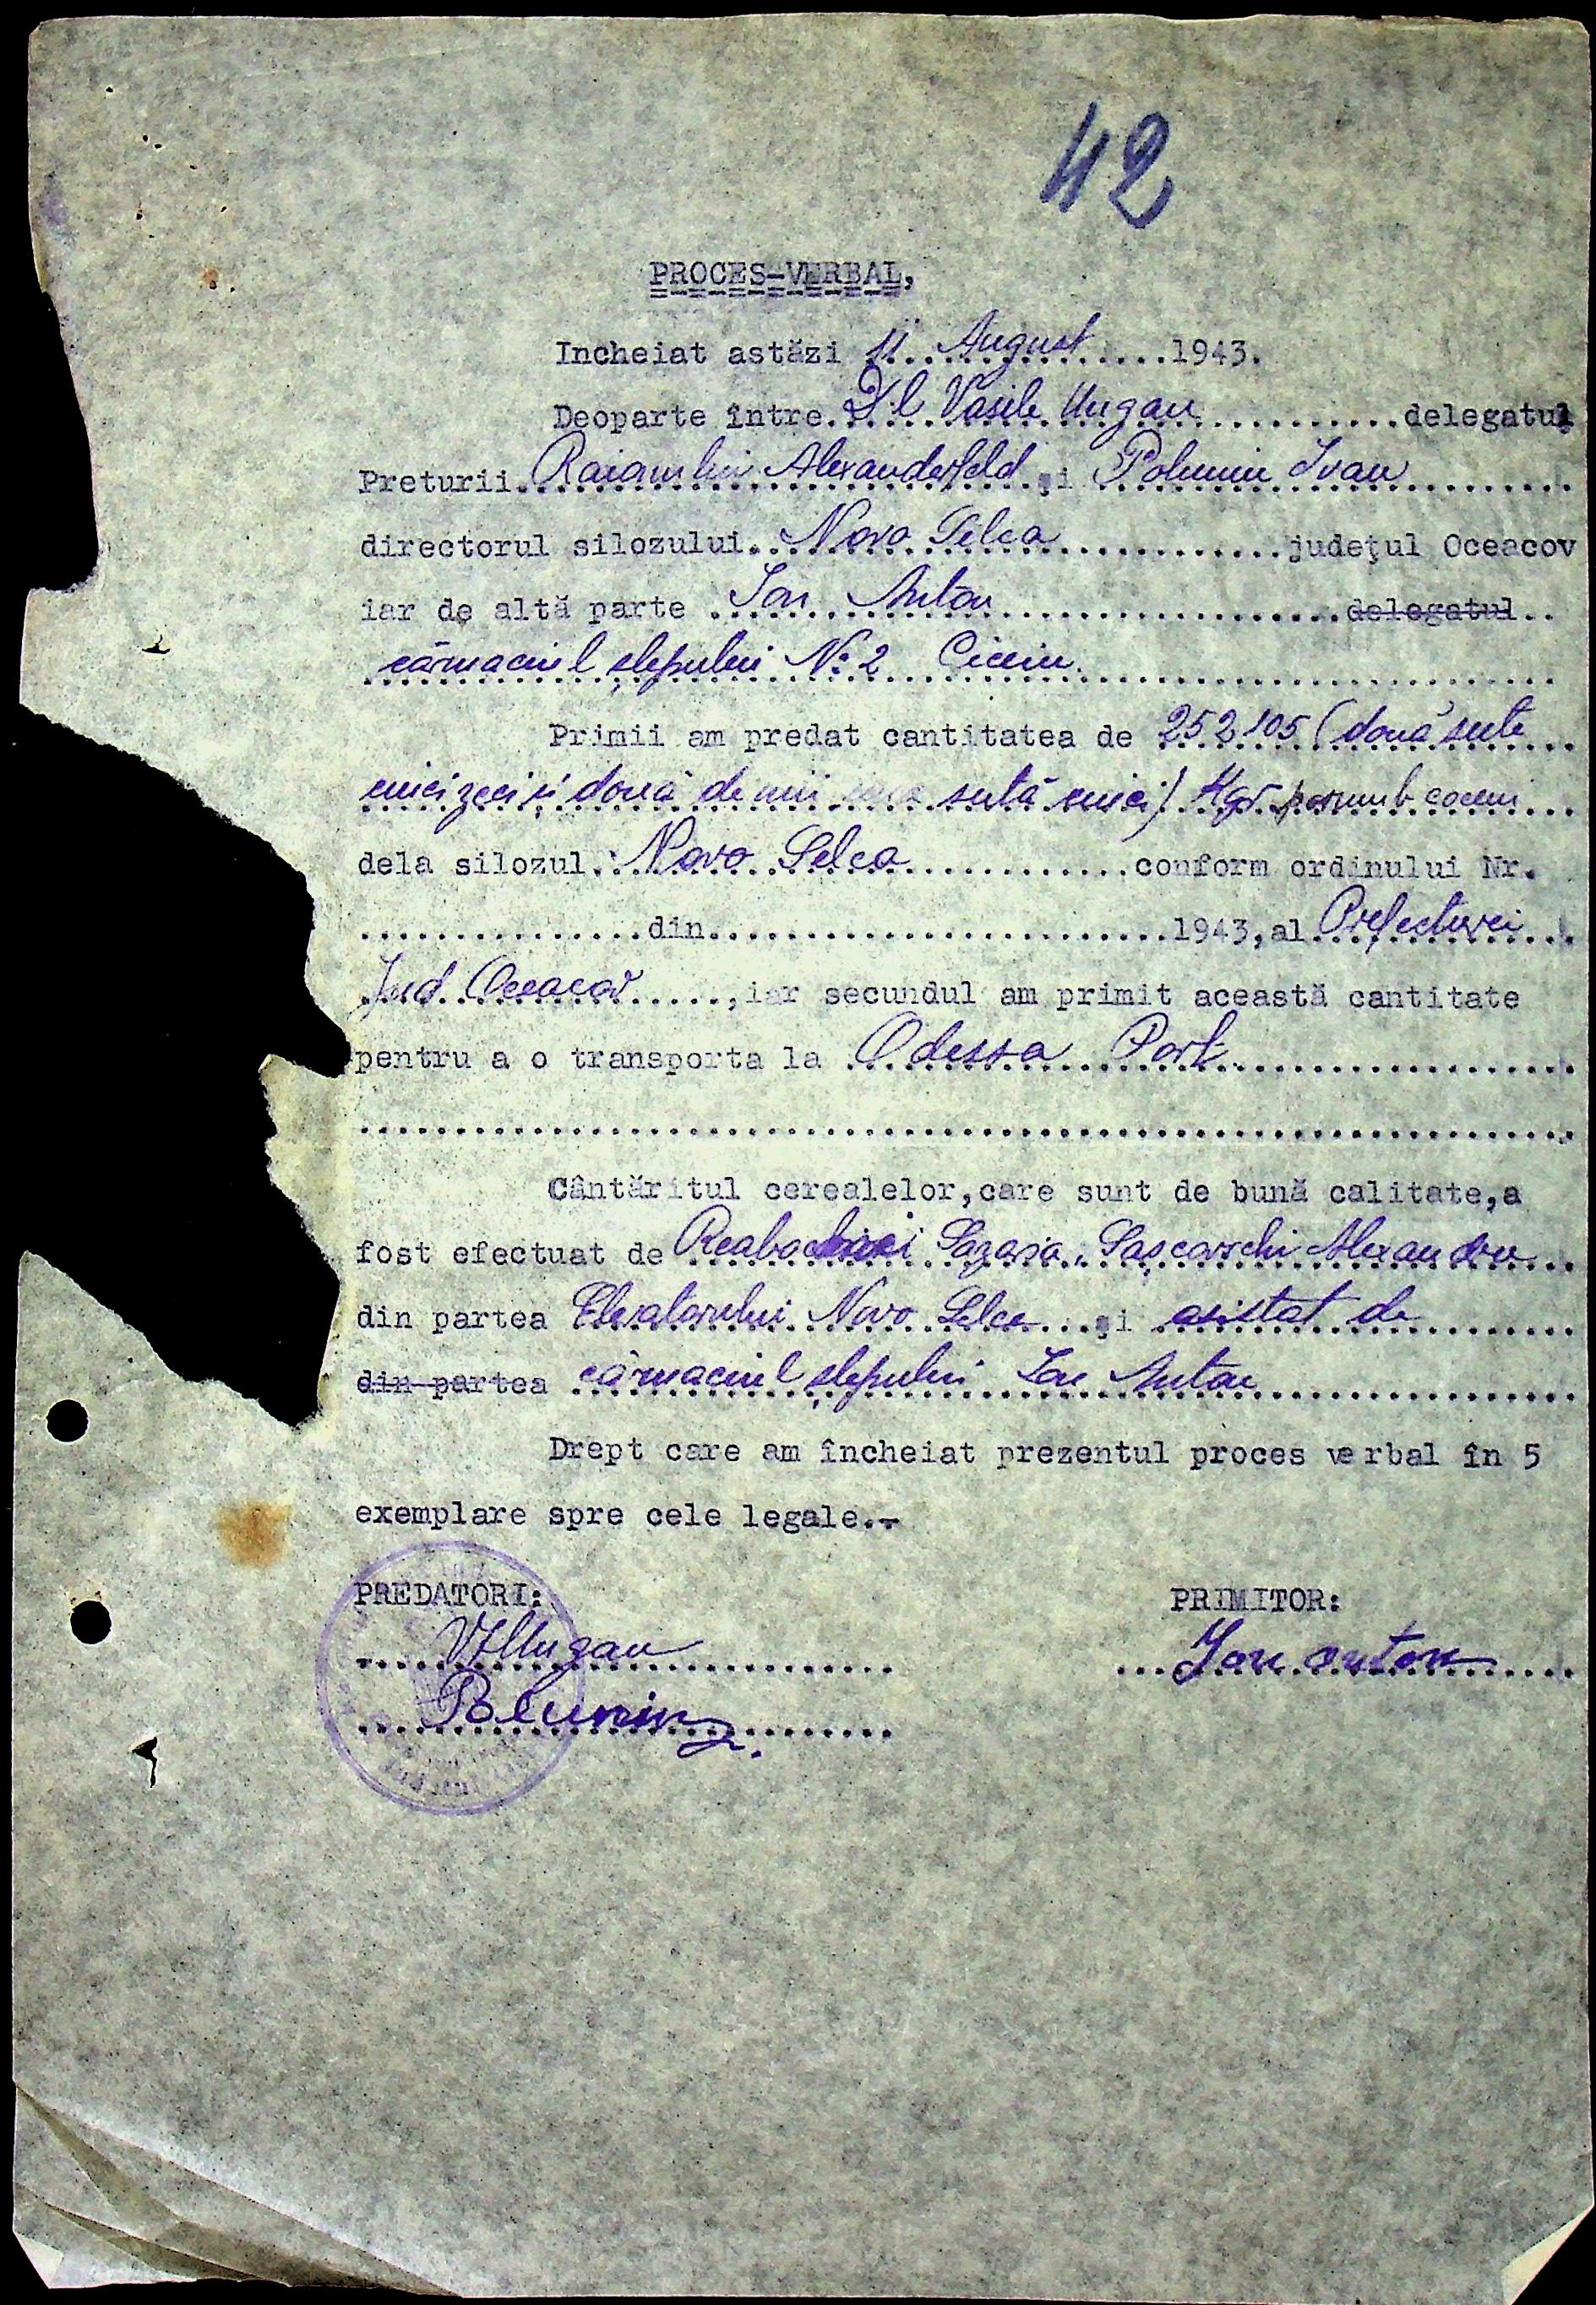 42
PROCES-VERBAL,
Incheiat astăzi 11 August 1943.
Deoparte între D-l Vasile Ungau delegatul
Preturii Raionului Alexanderfeld și Polunin Ivan
directorul silozului Novo Selca județul Oceacov
iar de altă parte Ion Anton delegatul
cârmaciul șlepului No 2
Primii am predat cantitatea de 252105 (două sute
cinci zeci și două de mii una sută cinci) Kgr porumb comun
dela silozul Novo Selca conform ordinului Nr.
din 1943, al Prefecturei
Jud. Oceacov, iar secundul am primit această cantitate
pentru a o transporta la Odessa Port
Cântăritul cerealelor, care sunt de bună calitate, a
fost efectuat de Lazaria, Sașcovschi Alexandru
din partea Elevatorului Novo Selca și asistat de
din partea cârmaciul șlepului Ion Anton
Drept care am încheiat prezentul proces verbal în 5
exemplare spre cele legale.-
PREDATORI:
PRIMITOR:
VUngau
Ion anton
Polunin